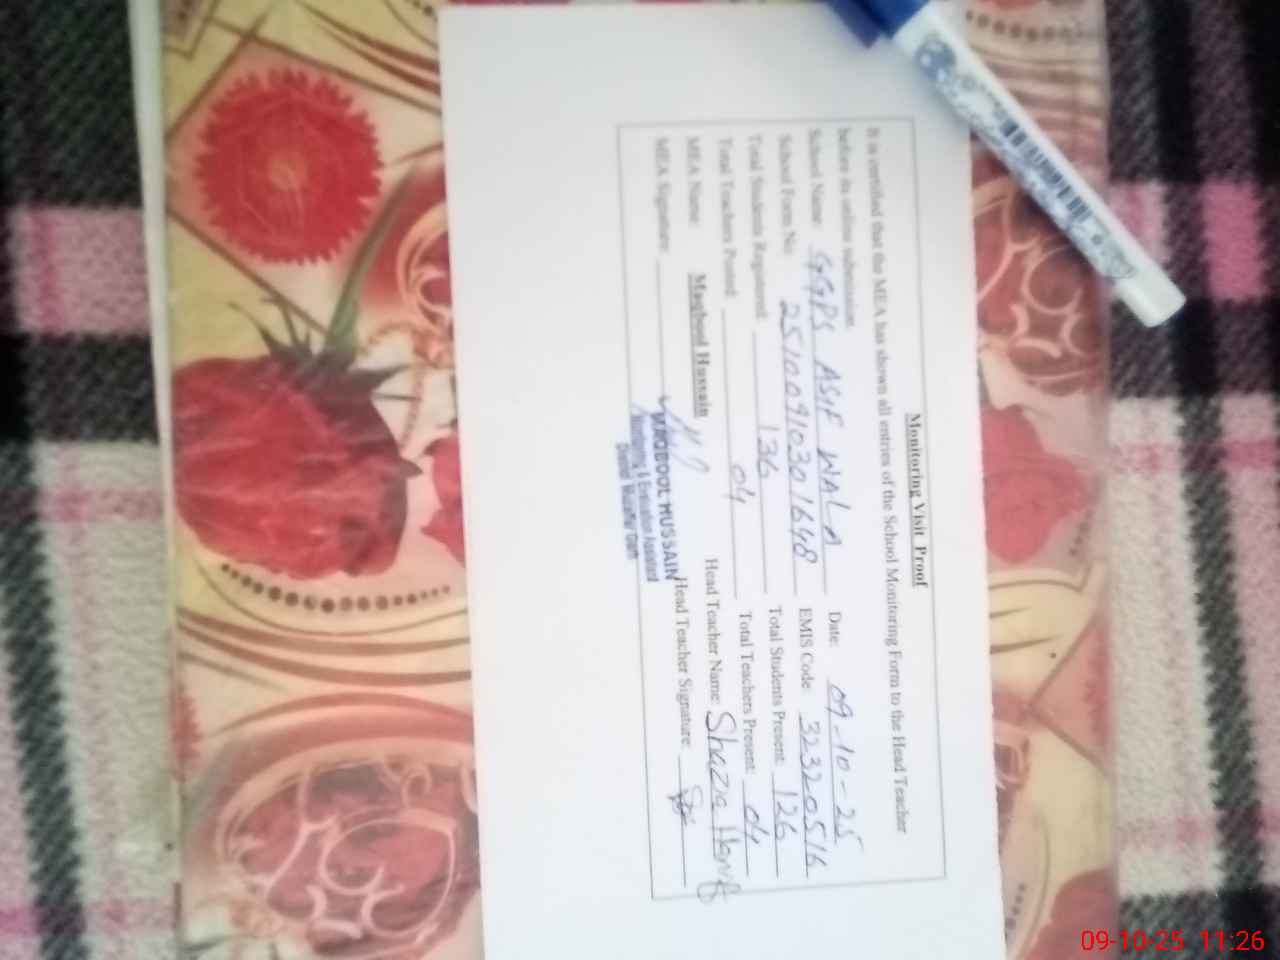 Monitoring Visit Proof
It is certified that the MEA has shown all entries of the School Monitoring Form to the Head Teacher
before its online submission.
School Name: GGPS ASIF WALA Date: 09-10-25
School Form No: 2510091030 1648 EMIS Code: 32320516
Total Students Registered: 136 Total Students Present: 126
Total Teachers Posted: 04 Total Teachers Present: 04
MEA Name: Maqbool Hussain Head Teacher Name: Shazia Hanif
MEA Signature: Head Teacher Signature:
MAQBOOL HUSSAIN
Monitoring & Evaluation Assistant
District Muzaffar Garh
09-10-25 11:26